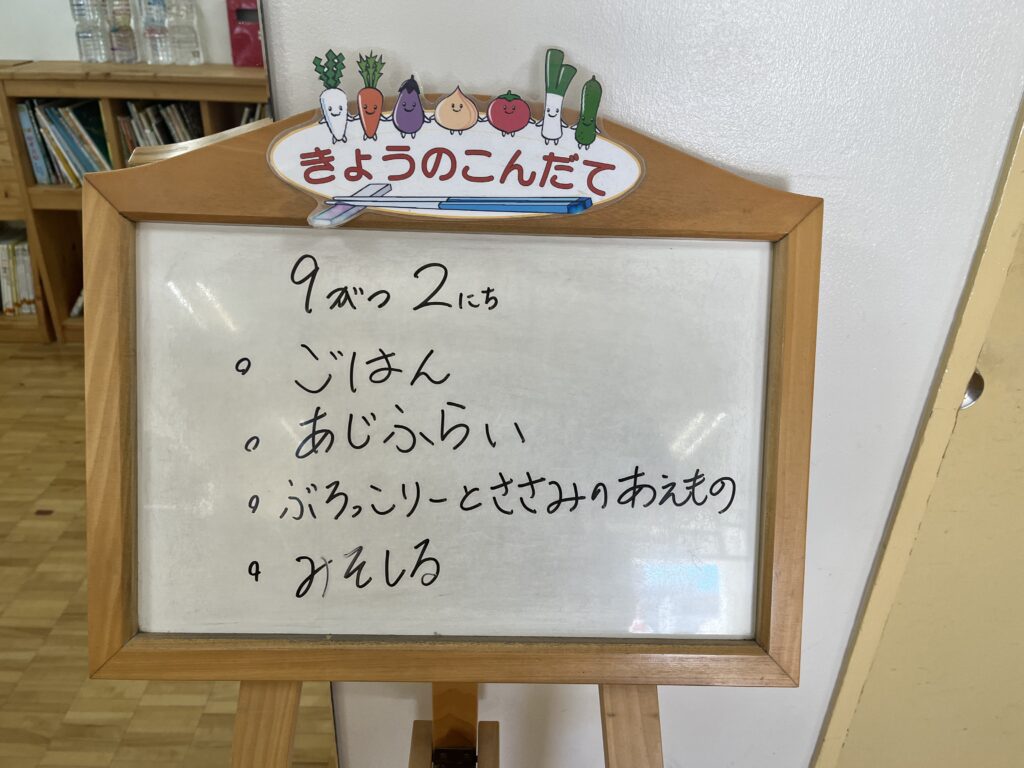 きょうのこんだて
9がつ 2にち
・ごはん
・あじふらい
・ぶろっこりーとささみのあえもの
・みそしる